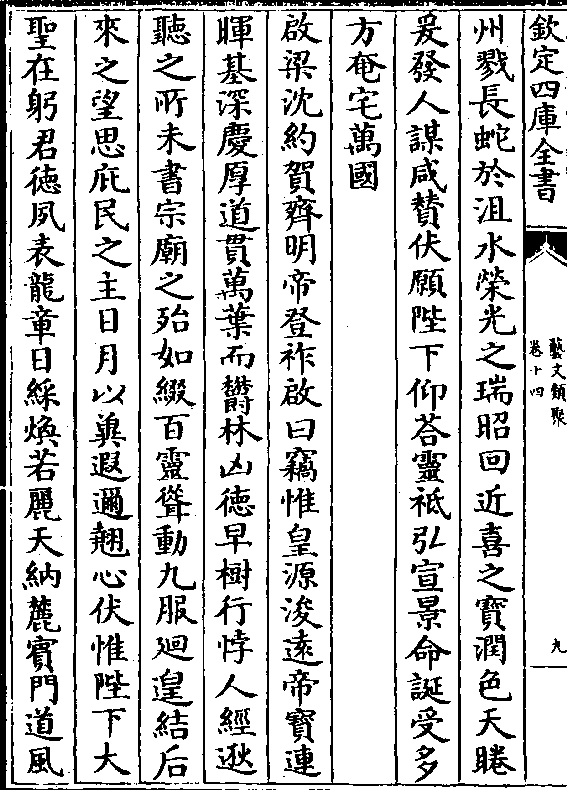 欽定四庫全書
藝文類聚
卷十四
九
州戮長蛇於沮水榮光之瑞昭回近喜之寶潤色天睠
爰發人謀咸賛伏願陛下仰荅靈祇弘宣景命誕受多
方奄宅萬國
啟梁沈約賀齊明帝登祚啟曰竊惟皇源浚逺帝寶連
暉基深慶厚道貫萬葉而欝林凶徳早樹行悖人經逖
聽之所未書宗廟之殆如綴百靈聳動九服廻遑結后
來之望思庇民之主日月以兾遐邇翹心伏惟陛下大
聖在躬君徳夙表龍章日綵煥若麗天納麓賓門道風